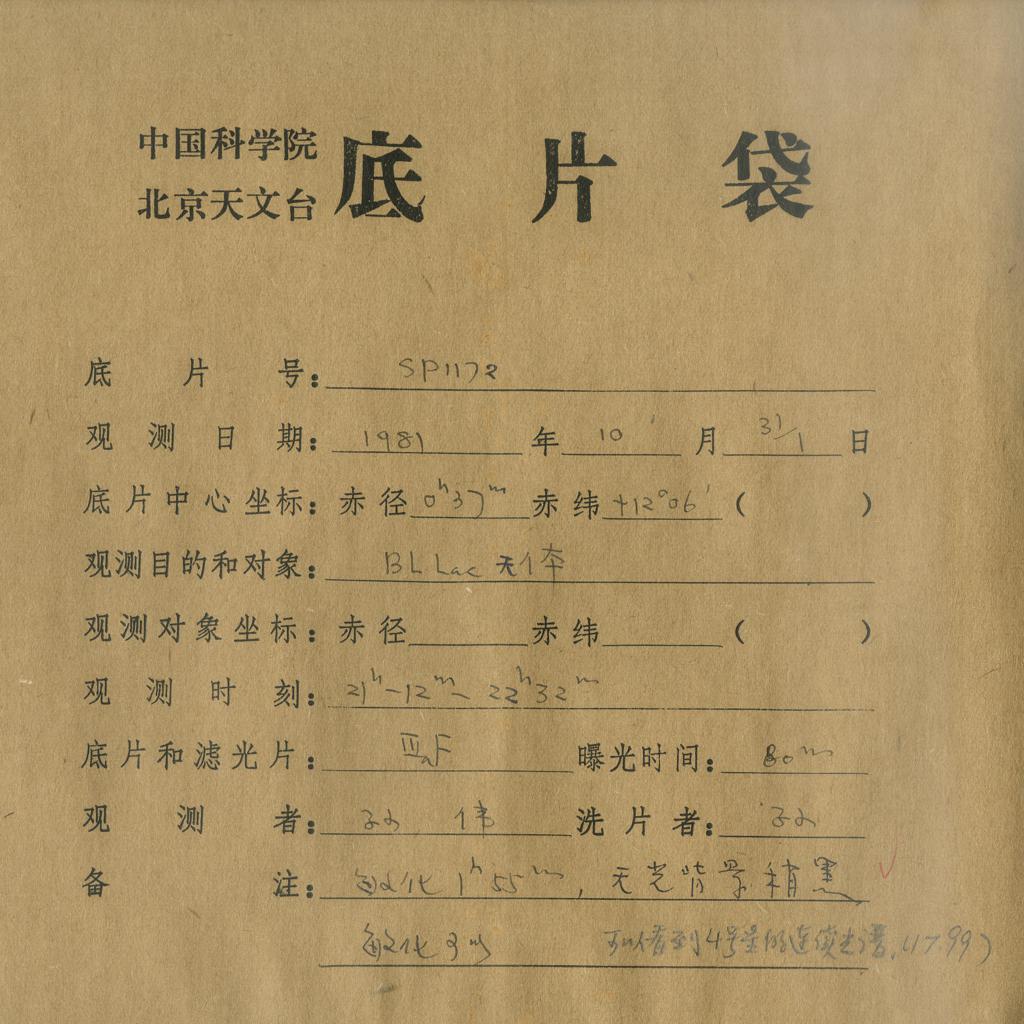 中国科学院
北京天文台
底片袋
底片号: SP1172
观测日期: 1981 年 10 月 31/1 日
底片中心坐标: 赤径 0h37m 赤纬 +12°06′ ( )
观测目的和对象: BL Lac 天体
观测时刻: 21h-12m- 22h32m
观测对象坐标: 赤径 赤纬 ( )
底片和滤光片: IIaF 曝光时间: 80m
观测者: 孙 伟 洗片者: 孙
备注: 敏化 1h55m, 天光背景稍黑
敏化 可以看到4号星的连续光谱. (17.99)